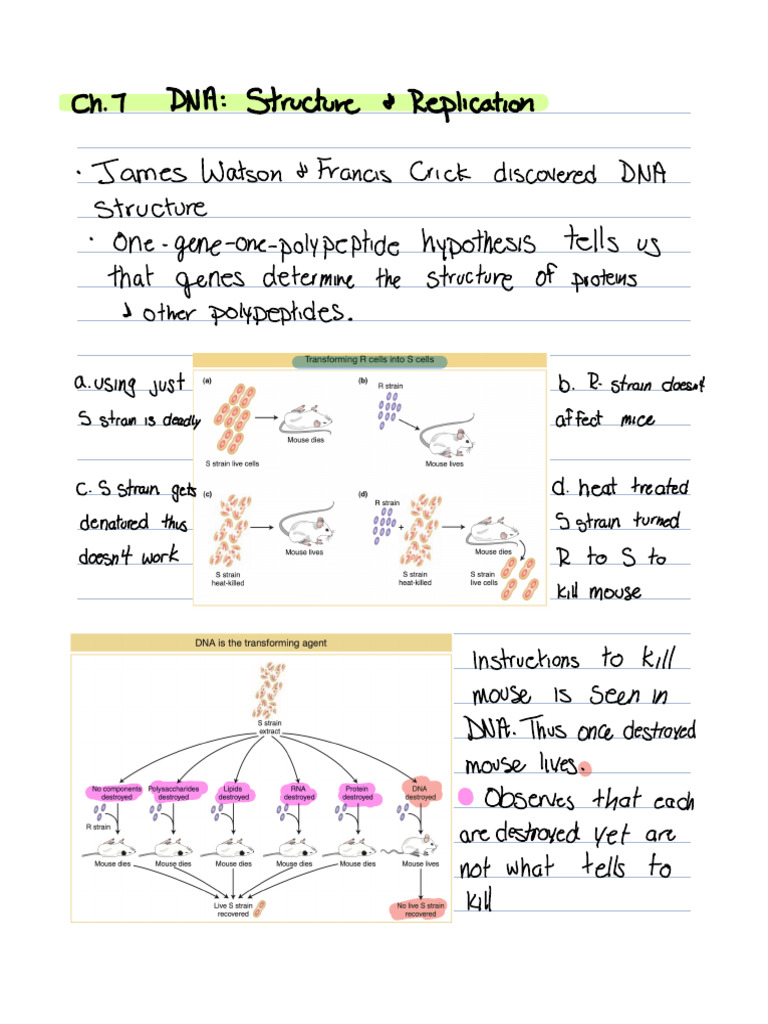 Ch.7 DNA: Structure & Replication
· James Watson & Francis Crick discovered DNA
Structure
· One-gene-one-polypeptide hypothesis tells us
that genes determine the structure of proteins
& other polypeptides.
Transforming R cells into S cells
a. using just
S strain is deadly
(a)
S strain live cells
Mouse dies
(b)
R strain
Mouse lives
b. R. strain doesn't
affect mice
c. S strain gets
denatured thus
doesn't work
(c)
S strain
heat-killed
Mouse lives
(d)
R strain
+
S strain
heat-killed
Mouse dies
S strain
live cells
d. heat treated
S strain turned
R to S to
kill mouse
DNA is the transforming agent
S strain
extract
No components
destroyed
Polysaccharides
destroyed
Lipids
destroyed
RNA
destroyed
Protein
destroyed
DNA
destroyed
R strain
Mouse dies
Mouse dies
Mouse dies
Mouse dies
Mouse dies
Mouse lives
Live S strain
recovered
No live S strain
recovered
Instructions to kill
mouse is seen in
DNA. Thus once destroyed
mouse lives.
Observes that each
are destroyed yet are
not what tells to
kill